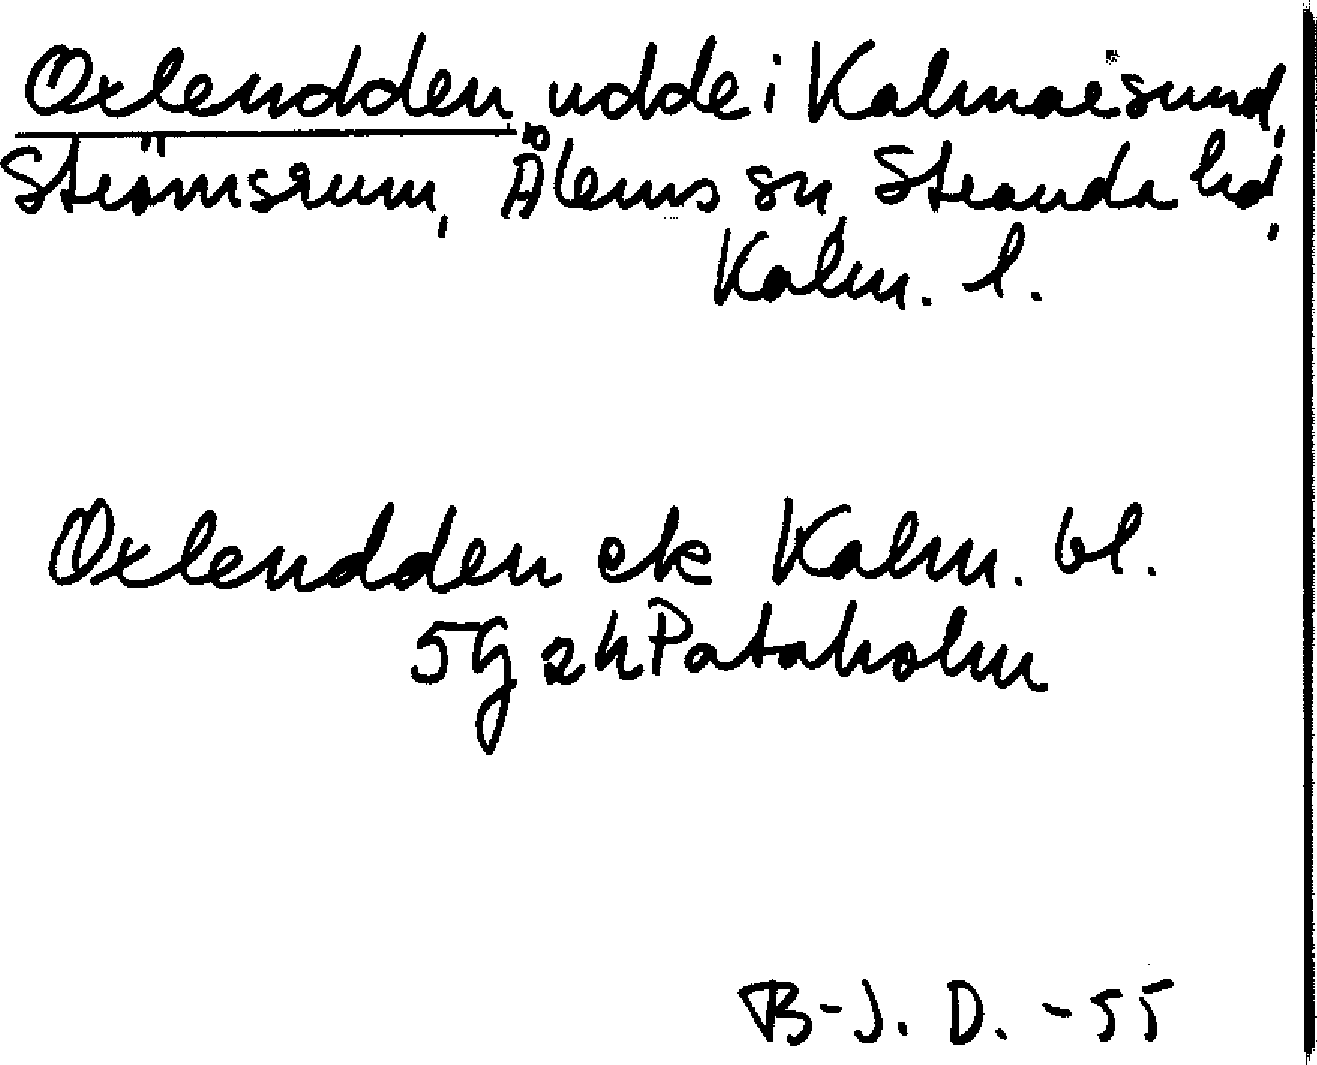 Oxleudden, udde i Kalmarsund,
Strömsrum, Ålems sn, Stranda hd,
Kalm. l.
Oxleudden ek Kalm. bl.
5G 2h Pataholm
B-J. D. -55